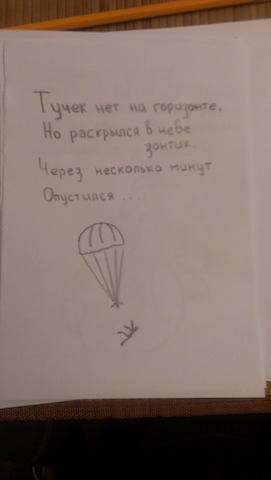 Тучек нет на горизонте,
Но раскрылся в небе
зонтик.
Через несколько минут
Опустился ....